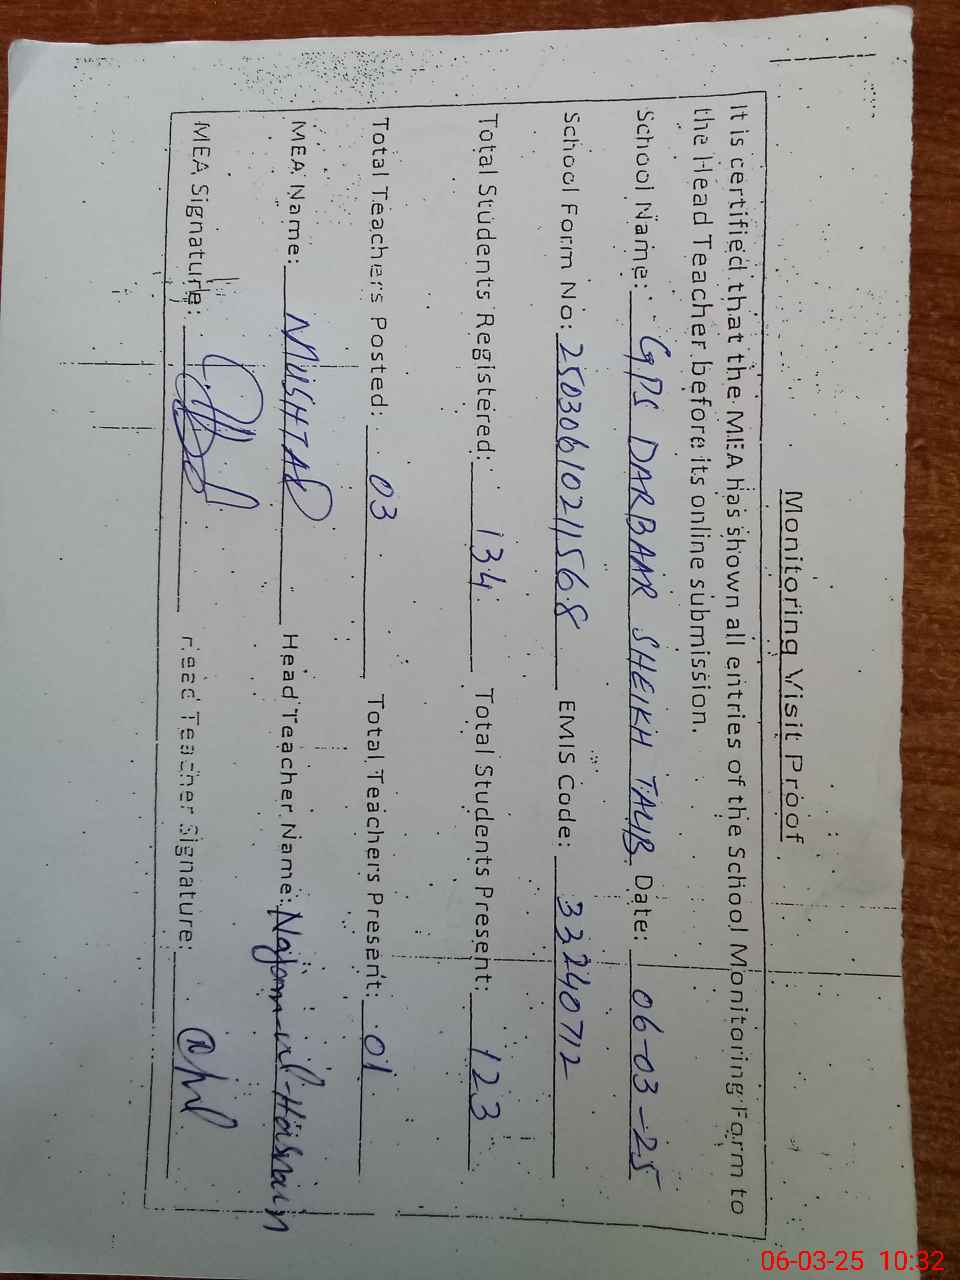 Monitoring Visit Proof
It is certified that the MEA has shown all entries of the School Monitoring Form to
the Head Teacher before its online submission.
School Name: GPS DARBAAR SHEIKH TALIB Date: 06-03-25
School Form No: 2503061021568 EMIS Code: 33240712
Total Students Registered: 134 Total Students Present: 123
Total Teachers Posted: 03 Total Teachers Present: 01
MEA Name: MUSHTAQ Head Teacher Name: Najam-ul-Hasnain
MEA Signature: Head Teacher Signature:
06-03-25 10:32